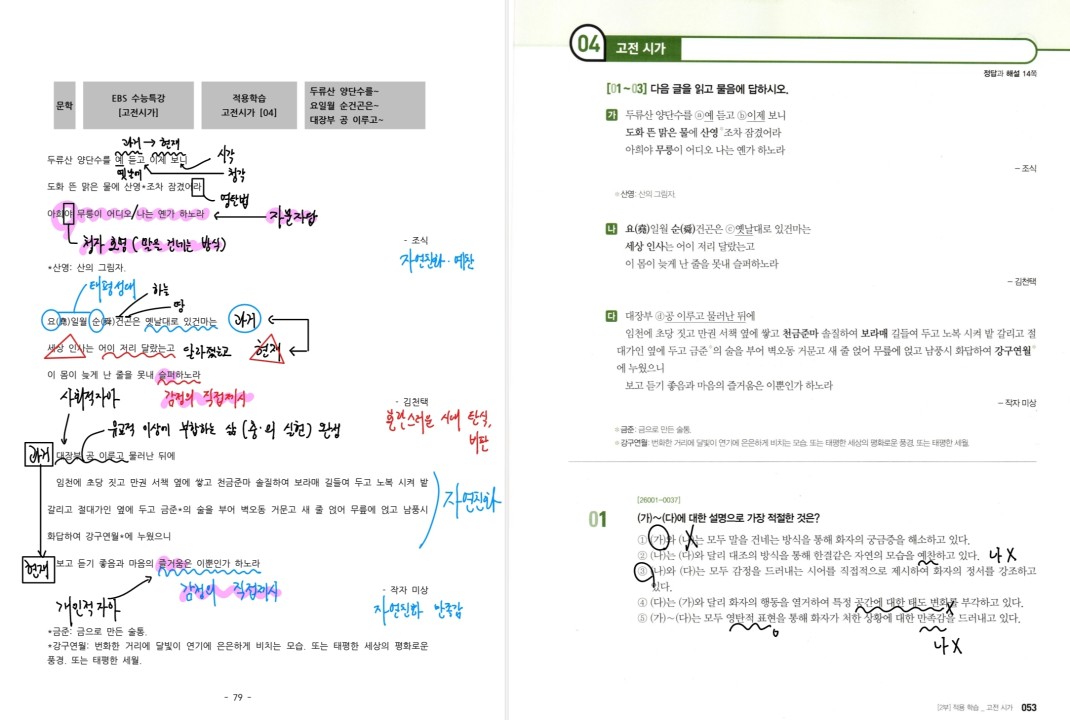 문학
EBS 수능특강
[고전시가]
적용학습
고전시가 [04]
두류산 양단수를~
요일월 순건곤은~
대장부 공 이루고~
과거 → 현재
두류산 양단수를 예 듣고 이제 보니
시각
옛날에
청각
도화 뜬 맑은 물에 산영*조차 잠겼어라
영탄법
아희야 무릉이 어디오/나는 옌가 하노라
자문자답
청자 호명 (말을 건네는 방식)
- 조식
자연친화·예찬
*산영: 산의 그림자.
태평성대
하늘
땅
요(堯)일월 순(舜)건곤은 옛날대로 있건마는
과거
세상 인사는 어이 저리 달랐는고
달라졌는고
현재
이 몸이 늦게 난 줄을 못내 슬퍼하노라
사회적자아
감정의 직접제시
- 김천택
혼란스러운 시대 탄식,
비판
유교적 이상에 부합하는 삶 (충·의 실현) 완성
과거
대장부 공 이루고 물러난 뒤에
임천에 초당 짓고 만권 서책 옆에 쌓고 천금준마 솔질하여 보라매 길들여 두고 노복 시켜 밭
갈리고 절대가인 옆에 두고 금준*의 술을 부어 벽오동 거문고 새 줄 얹어 무릎에 얹고 남풍시
화답하여 강구연월*에 누웠으니
자연친화
현재
보고 듣기 좋음과 마음의 즐거움은 이뿐인가 하노라
감정의 직접제시
- 작자 미상
개인적자아
자연친화 만족감
*금준: 금으로 만든 술통.
*강구연월: 번화한 거리에 달빛이 연기에 은은하게 비치는 모습. 또는 태평한 세상의 평화로운
풍경. 또는 태평한 세월.
- 79 -
04 고전 시가
정답과 해설 14쪽
[01~03] 다음 글을 읽고 물음에 답하시오.
가 두류산 양단수를 ⓐ예 듣고 ⓑ이제 보니
도화 뜬 맑은 물에 산영*조차 잠겼어라
아희야 무릉이 어디오 나는 옌가 하노라
- 조식
*산영: 산의 그림자.
나 요(堯)일월 순(舜)건곤은 ⓒ옛날대로 있건마는
세상 인사는 어이 저리 달랐는고
이 몸이 늦게 난 줄을 못내 슬퍼하노라
- 김천택
다 대장부 ⓓ공 이루고 물러난 뒤에
임천에 초당 짓고 만권 서책 옆에 쌓고 천금준마 솔질하여 보라매 길들여 두고 노복 시켜 밭 갈리고 절
대가인 옆에 두고 금준*의 술을 부어 벽오동 거문고 새 줄 얹어 무릎에 얹고 남풍시 화답하여 강구연월*
에 누웠으니
보고 듣기 좋음과 마음의 즐거움은 이뿐인가 하노라
- 작자 미상
*금준: 금으로 만든 술통.
*강구연월: 번화한 거리에 달빛이 연기에 은은하게 비치는 모습. 또는 태평한 세상의 평화로운 풍경. 또는 태평한 세월.
[26001-0037]
01 (가)~(다)에 대한 설명으로 가장 적절한 것은?
① (가)와 (나)는 모두 말을 건네는 방식을 통해 화자의 궁금증을 해소하고 있다.
② (나)는 (다)와 달리 대조의 방식을 통해 한결같은 자연의 모습을 예찬하고 있다. 나 X
③ (나)와 (다)는 모두 감정을 드러내는 시어를 직접적으로 제시하여 화자의 정서를 강조하고
있다.
④ (다)는 (가)와 달리 화자의 행동을 열거하여 특정 공간에 대한 태도 변화를 부각하고 있다.
⑤ (가)~(다)는 모두 영탄적 표현을 통해 화자가 처한 상황에 대한 만족감을 드러내고 있다.
나 X
[2부] 적용 학습 _ 고전 시가 053